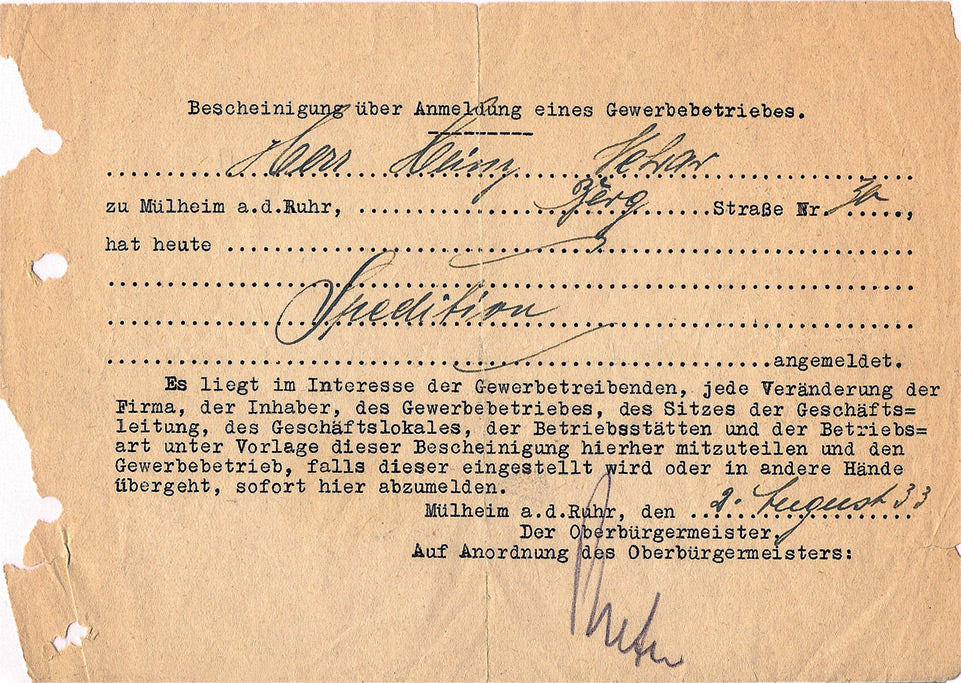 Bescheinigung über Anmeldung eines Gewerbebetriebes.
Herr Heinz
zu Mülheim a.d.Ruhr, Berg Straße Nr. 3a,
hat heute
Spedition
angemeldet.
Es liegt im Interesse der Gewerbetreibenden, jede Veränderung der
Firma, der Inhaber, des Gewerbebetriebes, des Sitzes der Geschäfts=
leitung, des Geschäftslokales, der Betriebsstätten und der Betriebs=
art unter Vorlage dieser Bescheinigung hierher mitzuteilen und den
Gewerbebetrieb, falls dieser eingestellt wird oder in andere Hände
übergeht, sofort hier abzumelden.
Mülheim a.d.Ruhr, den 2. August 33
Der Oberbürgermeister.
Auf Anordnung des Oberbürgermeisters: